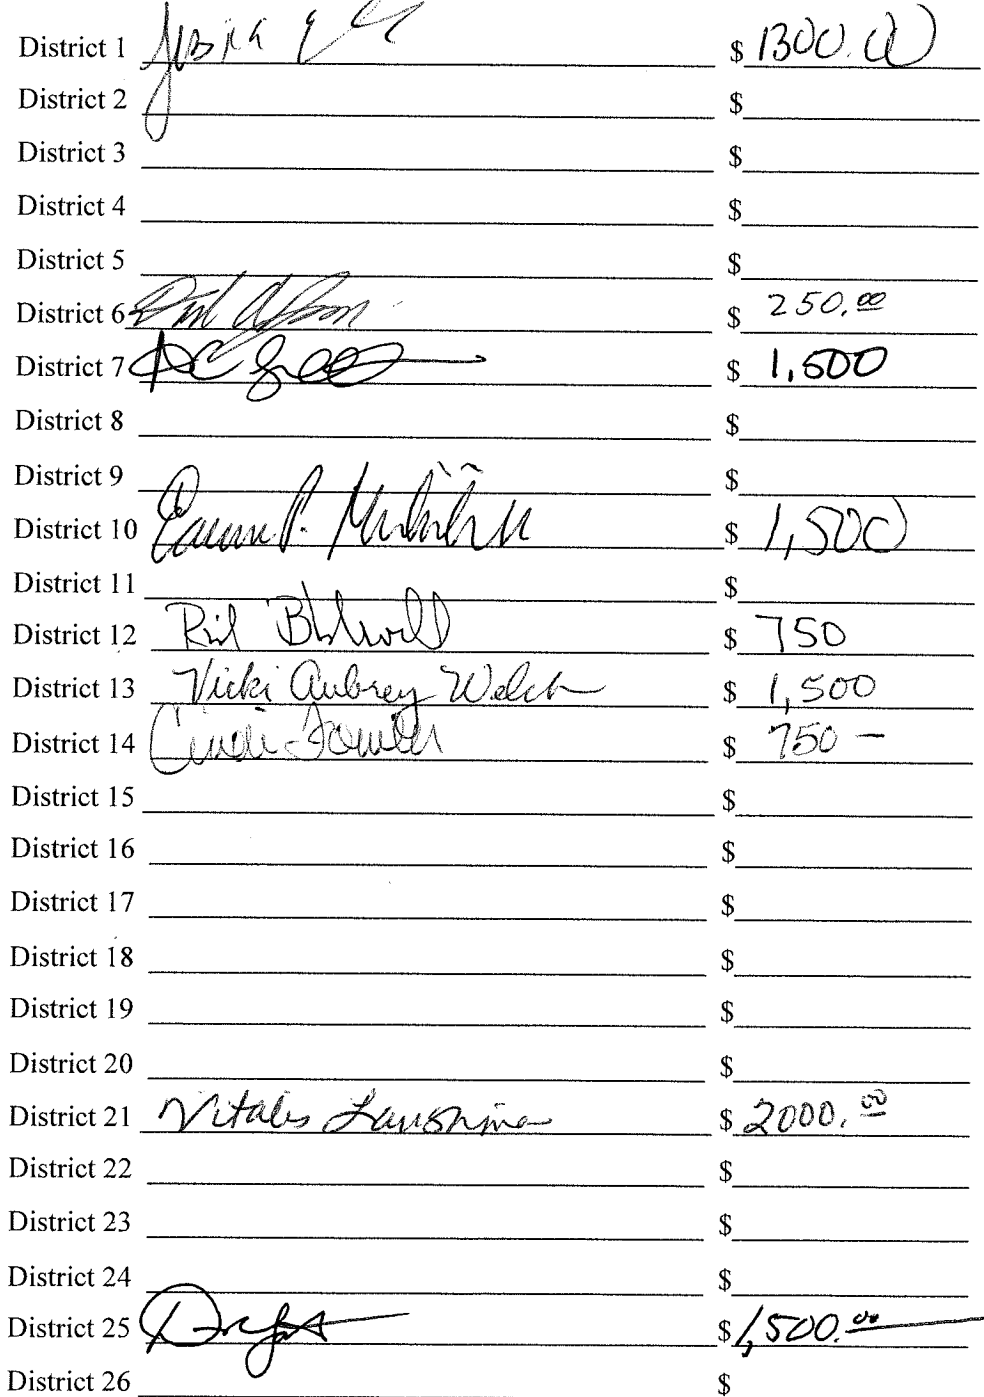 District 1 $ 1300.00
District 2 $
District 3 $
District 4 $
District 5 $
District 6 $ 250.00
District 7 $ 1,500
District 8 $
District 9 $
District 10 $ 1,500
District 11 $
District 12 $ 750
District 13 Vicki Aubrey Welch $ 1,500
District 14 Cindi Fowler $ 750 —
District 15 $
District 16 $
District 17 $
District 18 $
District 19 $
District 20 $
District 21 Vitalis Lanshima $ 2000.00
District 22 $
District 23 $
District 24 $
District 25 $ 1,500.00
District 26 $